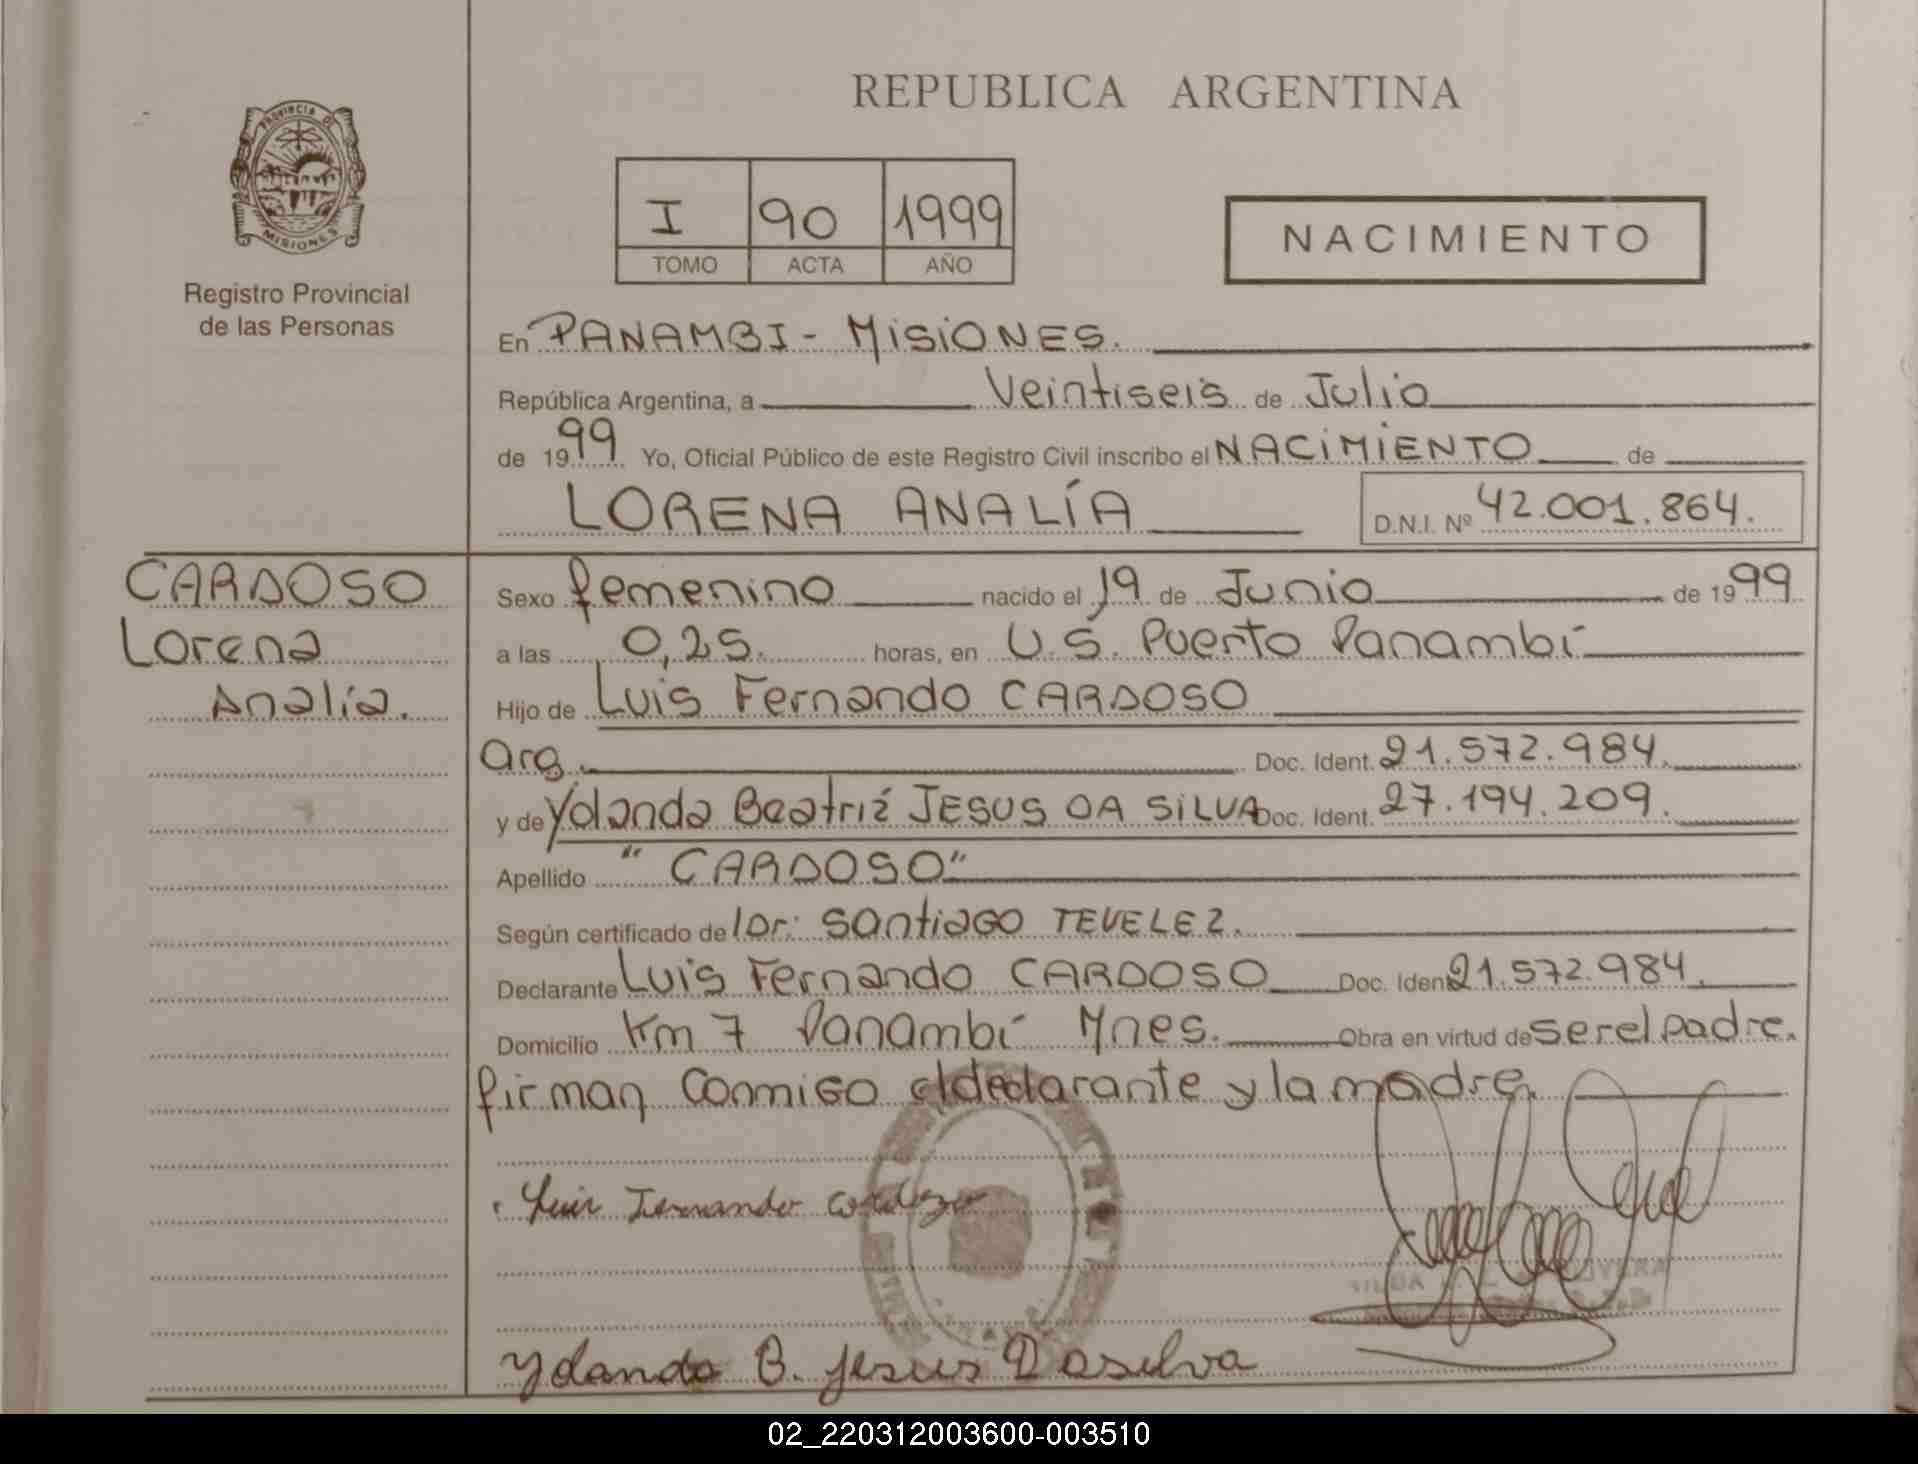 REPUBLICA ARGENTINA
PROVINCIA DE
MISIONES
Registro Provincial
de las Personas
I 90 1999
TOMO ACTA AÑO
NACIMIENTO
En PANAMBI - MISIONES.
República Argentina, a Veintiseis de Julio
de 1999 Yo, Oficial Público de este Registro Civil inscribo el NACIMIENTO de
LORENA ANALÍA D.N.I. Nº 42.001.864.
CARDOSO
Lorena
Analía.
Sexo femenino nacido el 19 de Junio de 1999
a las 0,25. horas, en U.S. Puerto Panambí
Hijo de Luis Fernando CARDOSO
arg. Doc. Ident. 21.572.984.
y de Yolanda Beatriz JESUS DA SILVA Doc. Ident. 27.194.209.
Apellido "CARDOSO"
Según certificado de Dr: Santiago TEVELEZ.
Declarante Luis Fernando CARDOSO Doc. Ident 21.572.984.
Domicilio Km 7 Panambí Mnes. Obra en virtud de ser el padre.
firman conmigo el declarante y la madre.
Luis Fernando Cardozo
Yolanda B. Jesus Dasilva
02_220312003600-003510